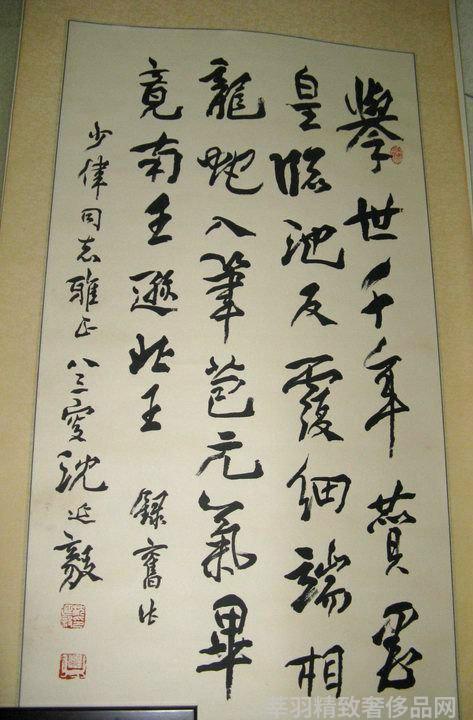 舉世千年贊墨
皇臨池反覆細端相
龍蛇入筆苞元氣畢
竟南王遜北王
錄舊作
少偉同志雅正 八三叟沈延毅
羽精致奢侈品网